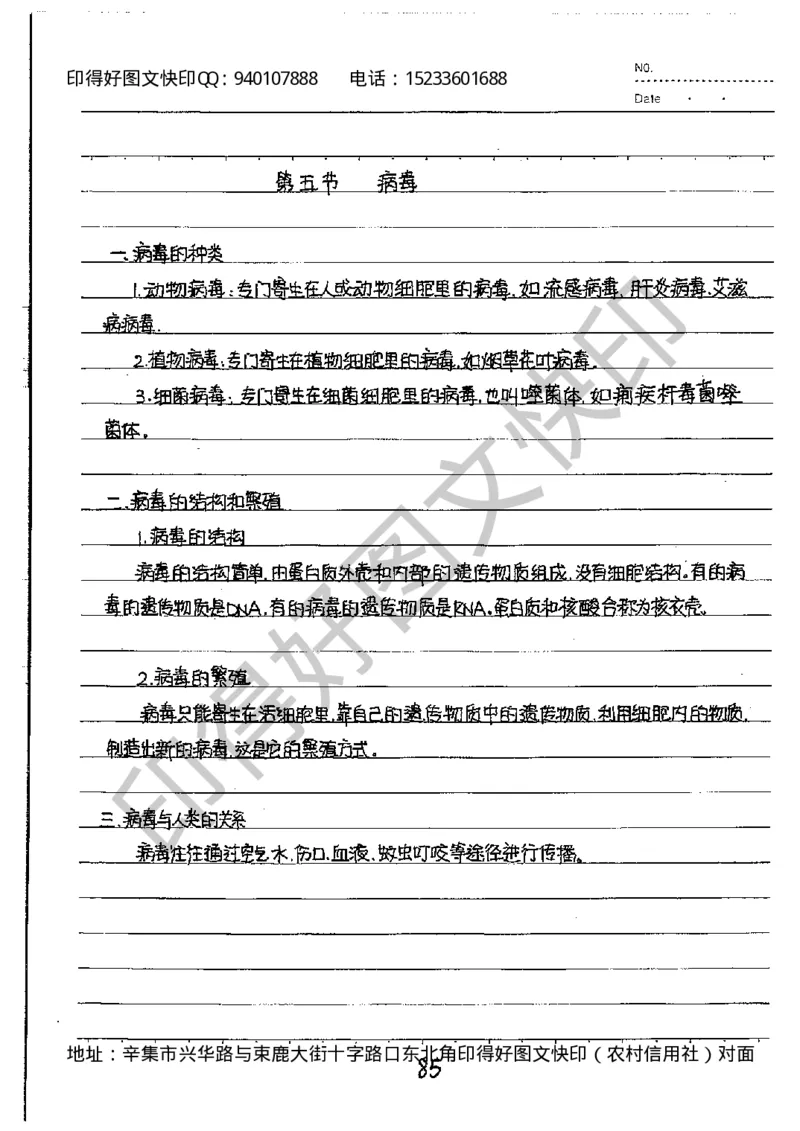 印得好图文快印QQ：940107888 电话：15233601688
NO.
Date
第五节 病毒
一.病毒的种类
1.动物病毒:专门寄生在人或动物细胞里的病毒,如流感病毒,肝炎病毒、艾滋
病病毒.
2.植物病毒:专门寄生在植物细胞里的病毒,如烟草花叶病毒.
3.细菌病毒:专门寄生在细菌细胞里的病毒,也叫噬菌体,如痢疾杆毒菌噬
菌体。
二.病毒的结构和繁殖
1.病毒的结构
病毒的结构简单,由蛋白质外壳和内部的遗传物质组成,没有细胞结构。有的病
毒的遗传物质是DNA,有的病毒的遗传物质是RNA。蛋白质和核酸合称为核衣壳。
2.病毒的繁殖
病毒只能寄生在活细胞里,靠自己的遗传物质中的遗传物质,利用细胞内的物质,
制造出新的病毒,这是它的繁殖方式。
三.病毒与人类的关系
病毒往往通过空气水、伤口、血液、蚊虫叮咬等途径进行传播。
印得好图文快印
地址：辛集市兴华路与束鹿大街十字路口东北角印得好图文快印（农村信用社）对面
85